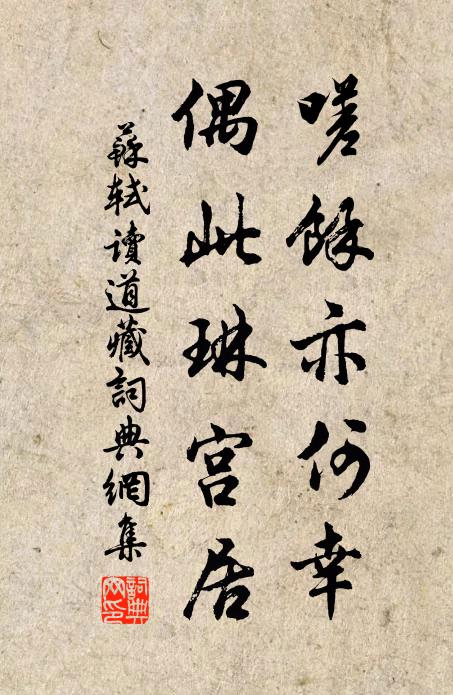 嗟餘亦何幸
偶此琳宮居
蘇軾讀道藏詞典網集
詞典网印